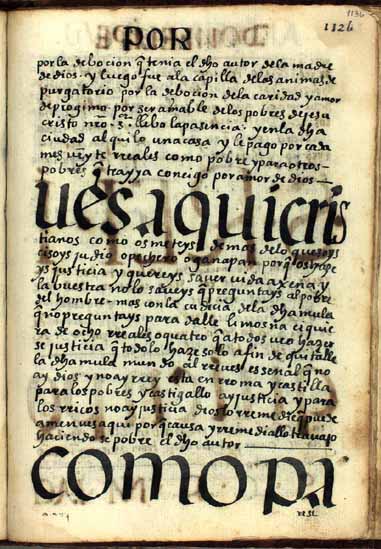 1136
1126
POR
por la deboçion q̃ tenia el dho autor de la madre
de dios · y luego fue a la capilla de las animas de
purgatorio por la deboçion de la caridad y amor
del progimo por ser amable de los pobres de jesu
cristo nr̃o s. llebo la pasencia y en la dha
ciudad alquilo una casa y le pago por cada
mes veynte rreales como pobre y para otros
pobres q̃ trayya concigo por amor de dios
ues aqui cris
tianos como os meteys demas de lo que soys
ci soys judio o pechero o ganapan por q̃ os hazeys
justicia y quereys sauer uida axena y
la buestra no lo saueys q̃ preguntays al pobre
del hombre mas con la cudicia de la dha mula
q̃ no preguntays para dalle limosna ciquie
ra de ocho rreales o quatro q̃ a todos ueo hazer
se justicia q̃ todo lo haze solo a fin de quitalle
la dha mula mundo al rreues es señal q̃ no
ay dios y no ay rrey esta en rroma y castilla
para los pobres y castigallo ay justicia y para
los rricos no ay justicia dios lo rremedie q̃ puede
amen ues aqui por q̃ causa y rremediallo trauajo
haciendose pobre el dho autor
como pa